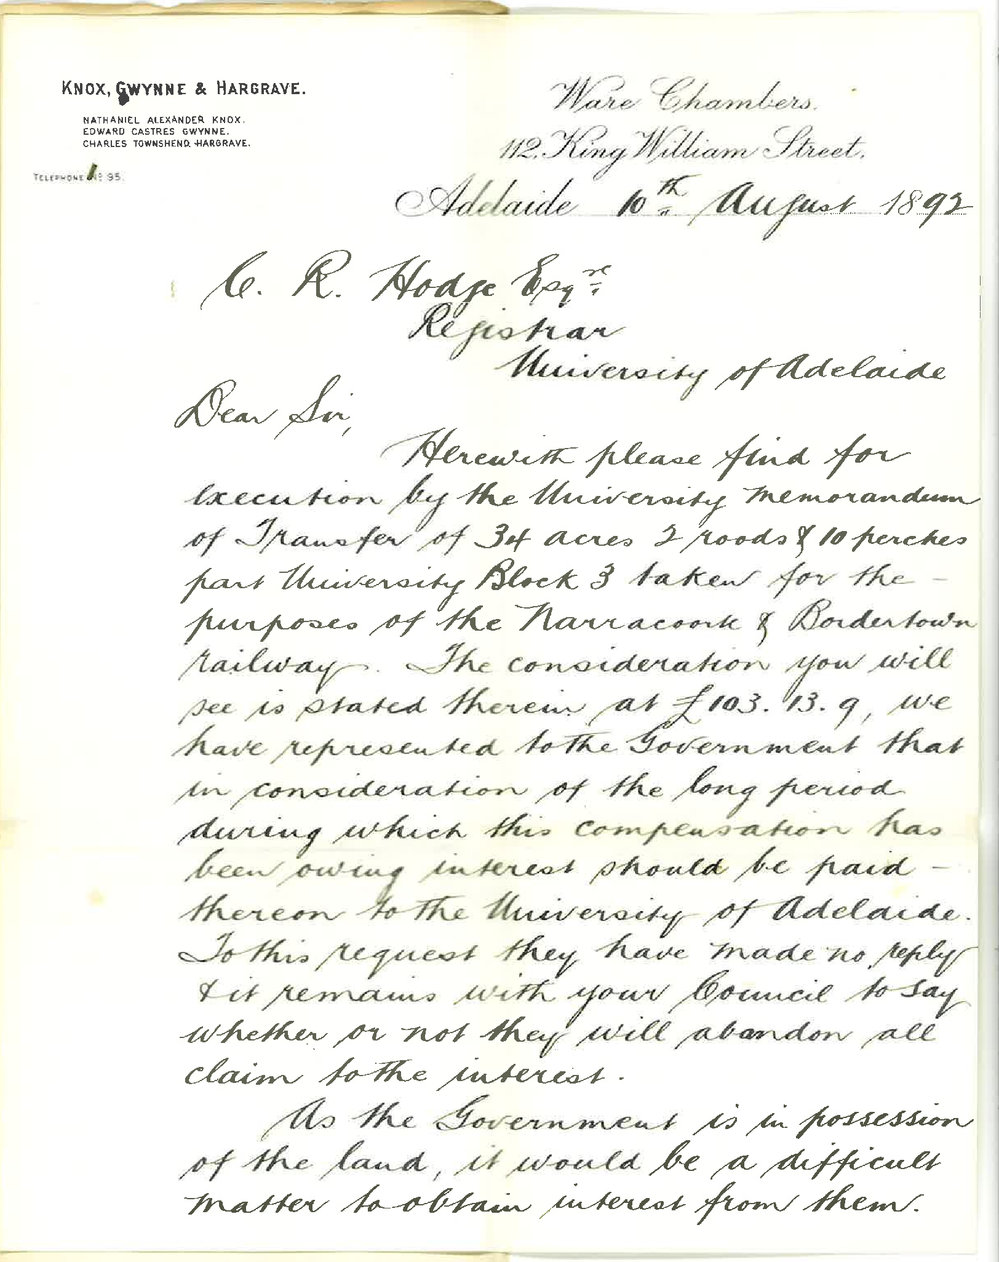 KNOX, GWYNNE & HARGRAVE.
NATHANIEL ALEXANDER KNOX.
EDWARD CASTRES GWYNNE.
CHARLES TOWNSHEND HARGRAVE.
TELEPHONE No 95.
Ware Chambers.
112, King William Street,
Adelaide 10th August 1892
C. R. Hodge Esqre
Registrar
University of Adelaide
Dear Sir,
Herewith please find for
execution by the University memorandum
of Transfer of 34 acres 2 roods & 10 perches
part University Block 3 taken for the -
purposes of the Narracoork & Bordertown
railway. The consideration you will
see is stated therein at £103.13.9, we
have represented to the Government that
in consideration of the long period
during which this compensation has
been owing interest should be paid -
thereon to the University of Adelaide.
To this request they have made no reply
& it remains with your Council to say
whether or not they will abandon all
claim to the interest.
As the Government is in possession
of the land, it would be a difficult
matter to obtain interest from them.